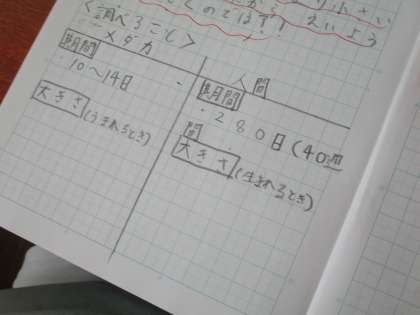 えいよう
くしてのでは?!
<調べること>
メダカ
期間
・10〜14日
大きさ(うまれるとき)
人間
期間
・280日(40週
間
大きさ(生まれるとき)